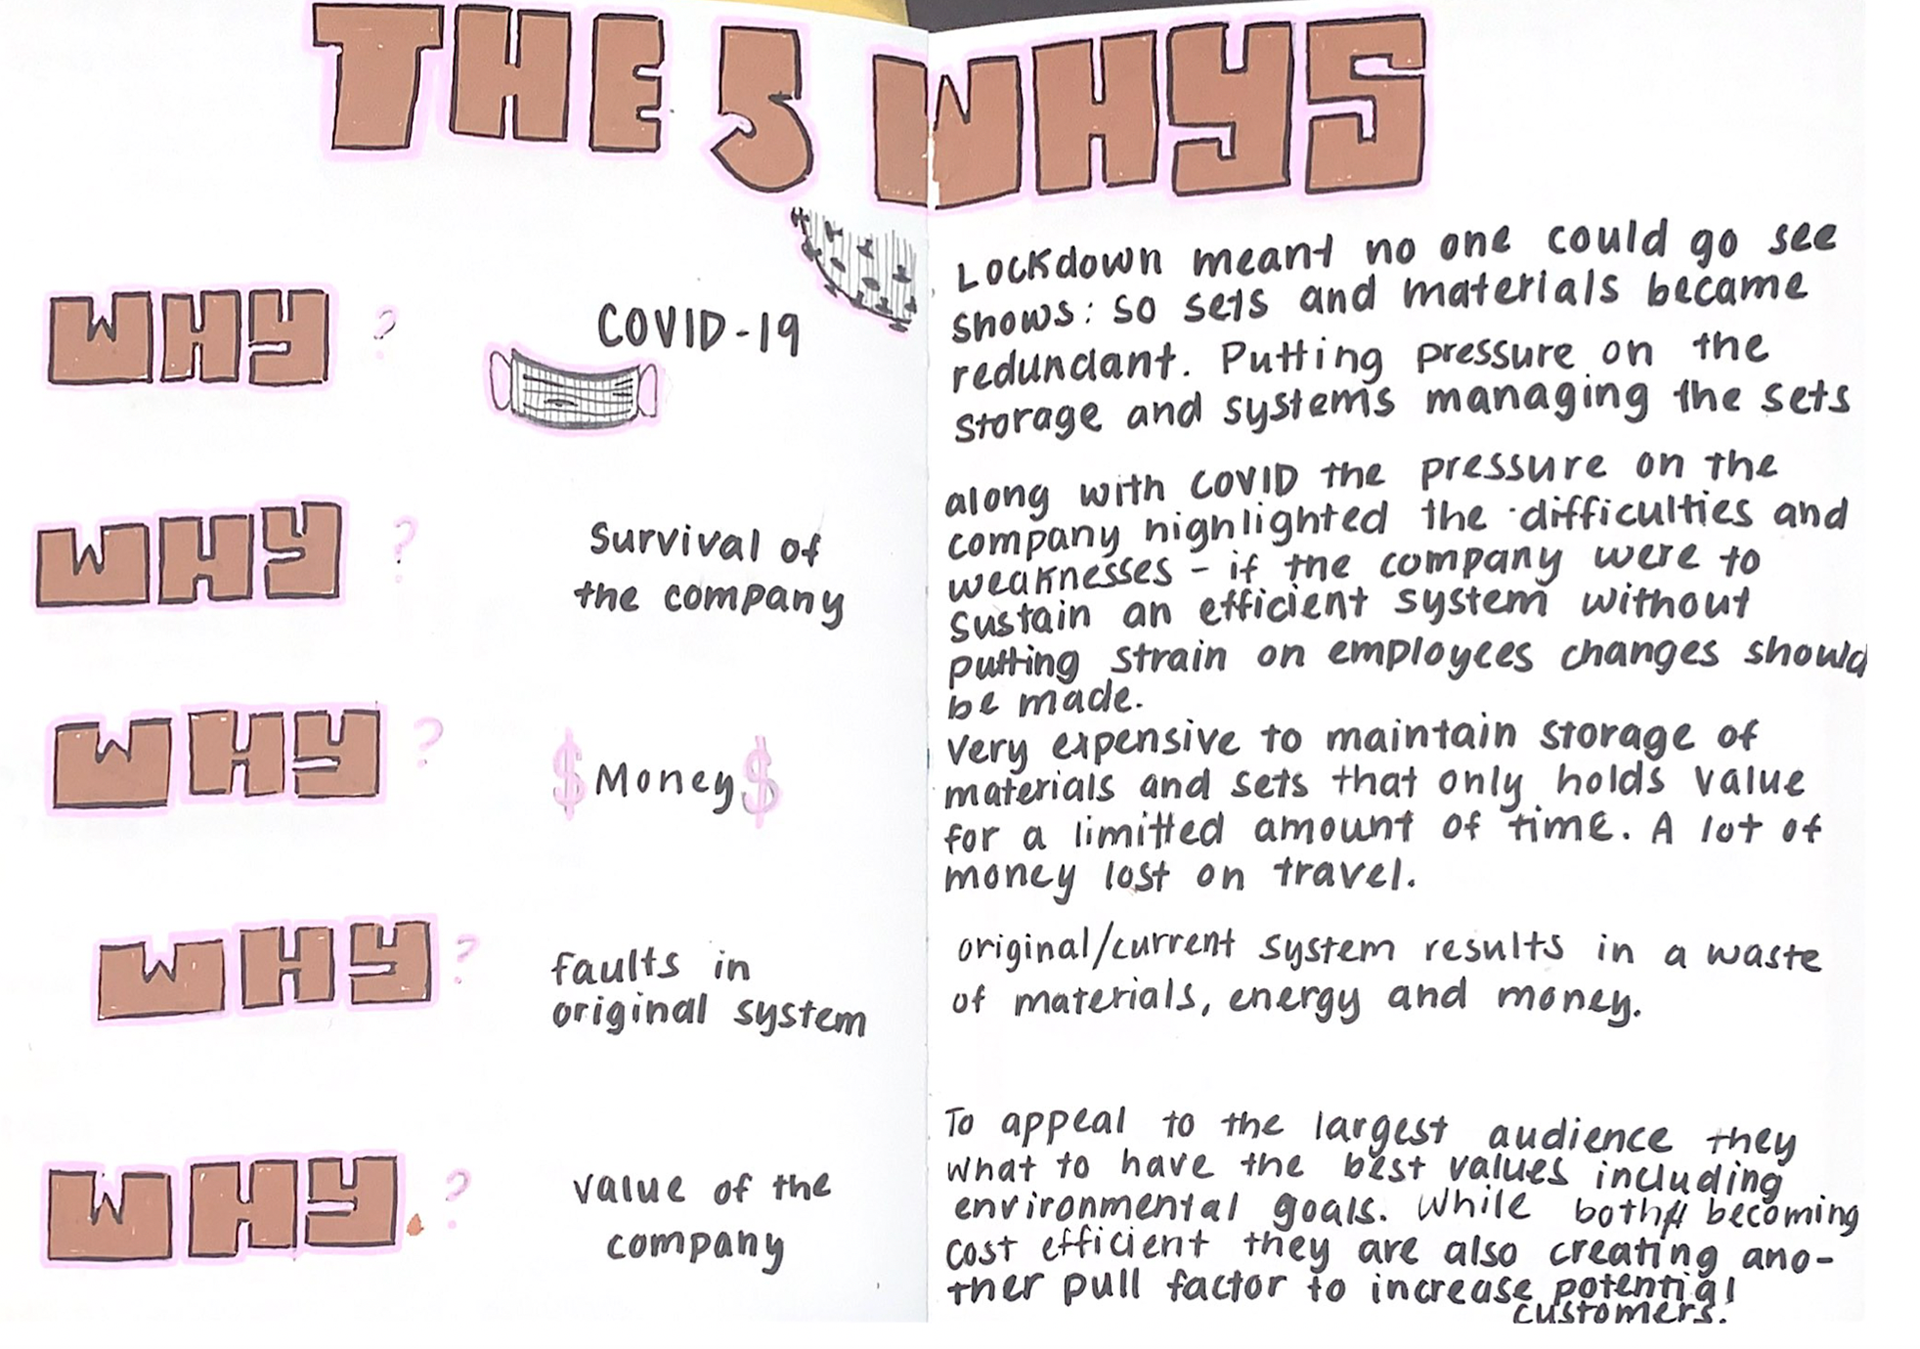 THE 5 WHYS
WHY ?
COVID-19
Lockdown meant no one could go see
shows: so sets and materials became
redundant. Putting pressure on the
storage and systems managing the sets
WHY ?
Survival of
the company
along with COVID the pressure on the
company highlighted the difficulties and
weaknesses - if the company were to
sustain an efficient system without
putting strain on employees changes should
be made.
WHY ?
$ Money $
Very expensive to maintain storage of
materials and sets that only holds value
for a limitted amount of time. A lot of
money lost on travel.
WHY ?
faults in
original system
original/current system results in a waste
of materials, energy and money.
WHY. ?
value of the
company
To appeal to the largest audience they
what to have the best values including
environmental goals. While both becoming
cost efficient they are also creating ano-
ther pull factor to increase potential
customers.